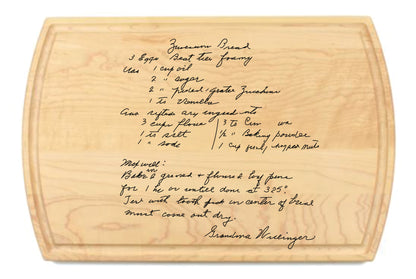 Zucinni Bread
3 Eggs Beat tier foamy
Add 1 cup oil
2 " sugar
2 " peeled & grater Zucchini
1 ts Vanilla
Add sifted dry ingred
3 cups flour 3 ts Cin
1 ts salt ½ " Baking powder
1 " soda 1 cup nuts
Mix well:
Bake in greased & floured loaf pans
for 1 hr or until done at 325°
Test with tooth pick in center of bread
must come out dry.
Grandma Willinger